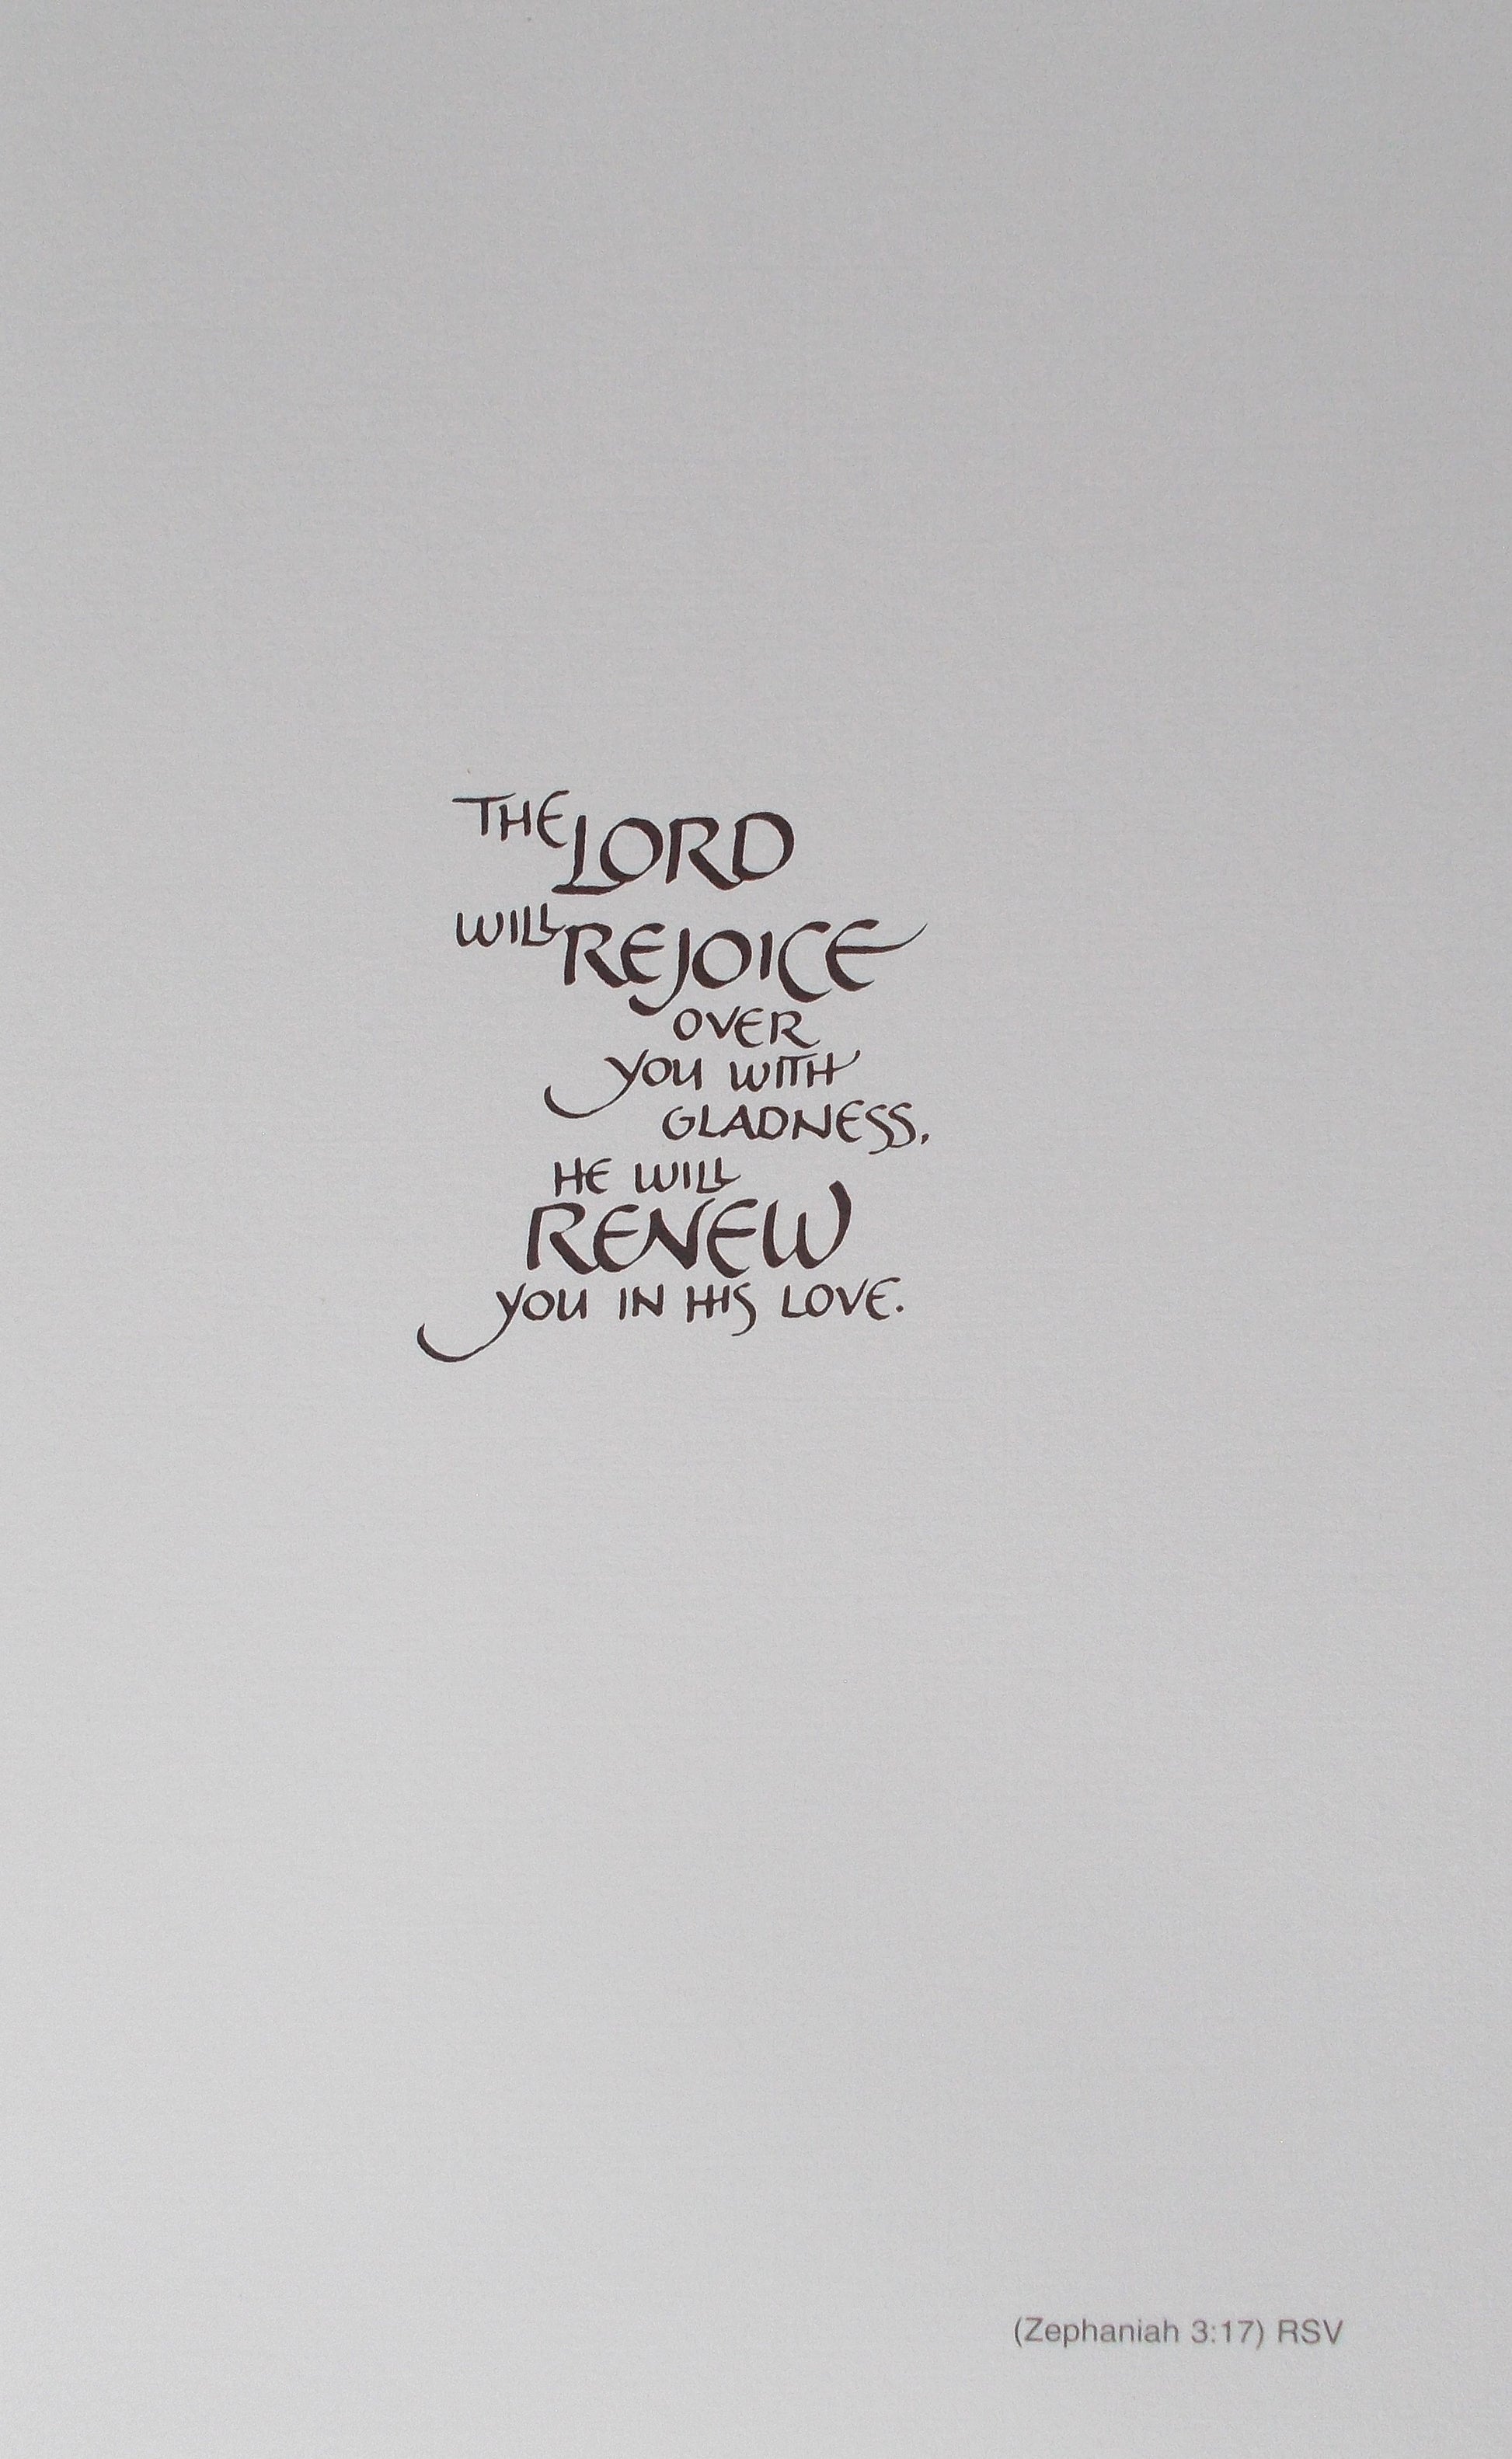 THE LORD
WILL REJOICE
OVER
YOU WITH
GLADNESS,
HE WILL
RENEW
YOU IN HIS LOVE.
(Zephaniah 3:17) RSV